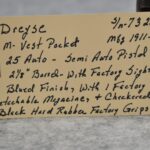 Dreyse S/n-732
M-Vest Pocket Mfg 1911-
25 Auto - Semi Auto Pistol
2⅛" Barrel - With Factory Sight
Blued Finish, With 1 Factory
etachable Magazines & Checkered
Black Hard Rubber Factory Grips